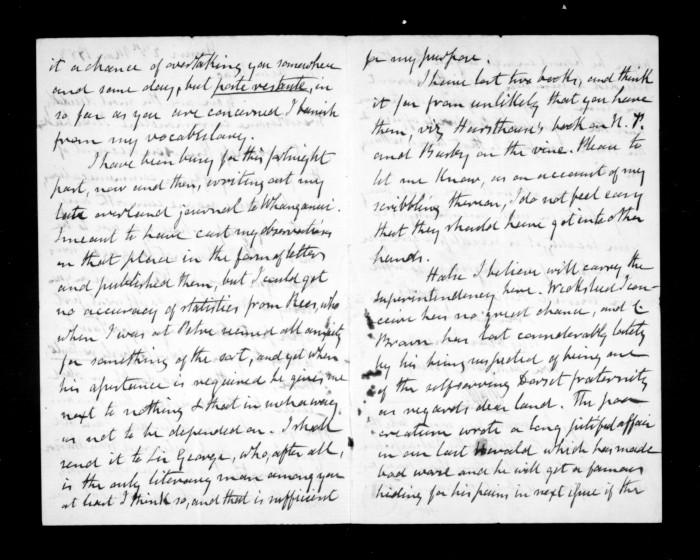 it a chance of overtaking you somewhere
and some day, but poste restante, in
so far as you are concerned I banish
from my vocabulary.
I have been busy for this fortnight
past, now and then, writing out my
late overland journal to Whanganui.
I meant to have cast my observations
on that place in the form of letters
and published them, but I could get
no accuracy of statistics from Rees, who
when I was at Petre seemed all anxiety
for something of the sort, and yet when
his assistance is required he gives me
next to nothing & that in such a way
as not to be depended on. I shall
send it to Sir George, who, after all,
is the only literary man among you
at least I think so, and that is sufficient
for my purpose.
I have lost two books, and think
it far from unlikely that you have
them, viz Hursthouse's book on N. P.
and Busby on the vine. Please to
let me know, as on account of my
scribbling thereon, I do not feel easy
that they should have got into other
hands.
Halse I believe will carry the
superintendency here. Wicksteed I con-
ceive has no great chance, and C
Brown has lost considerably lately
by his being suspected of being one
of the self serving Dorset fraternity
as regards dear land. The poor
creature wrote a long justified affair
in our last Herald which has made
bad worse and he will get a famous
hiding for his pains in next issue if the